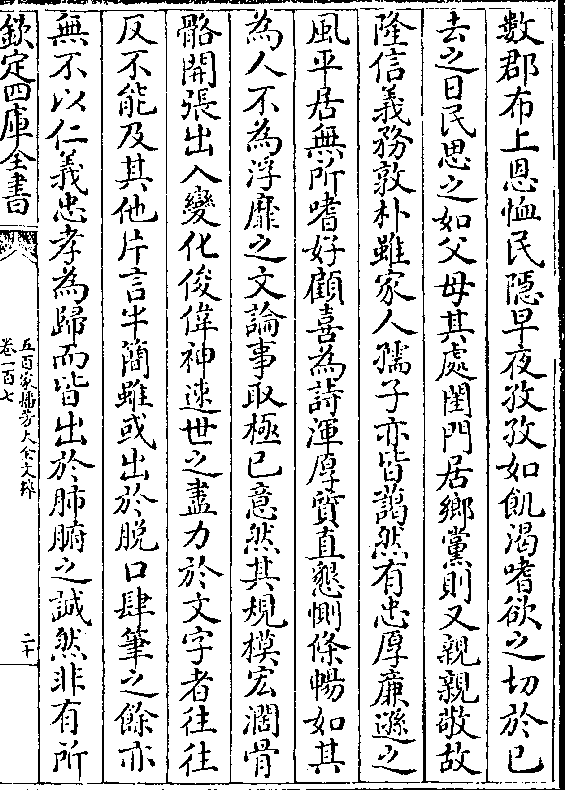 數郡布上恩恤民隱早夜孜孜如飢渴嗜欲之切於已
去之日民思之如父母其處閨門居鄉黨則又親親敬故
隆信義務敦朴雖家人孺子亦皆藹然有忠厚㢘遜之
風平居無所嗜好顧喜為詩渾厚質直懇惻條暢如其
為人不為浮靡之文論事取極已意然其規模宏濶骨
骼開張出入變化俊偉神速世之盡力於文字者往往
反不能及其他片言半簡雖或出於脱口肆筆之餘亦
無不以仁義忠孝為歸而皆出於肺腑之誠然非有所
欽定四庫全書
五百家播芳大全文粹
卷一百七
二十